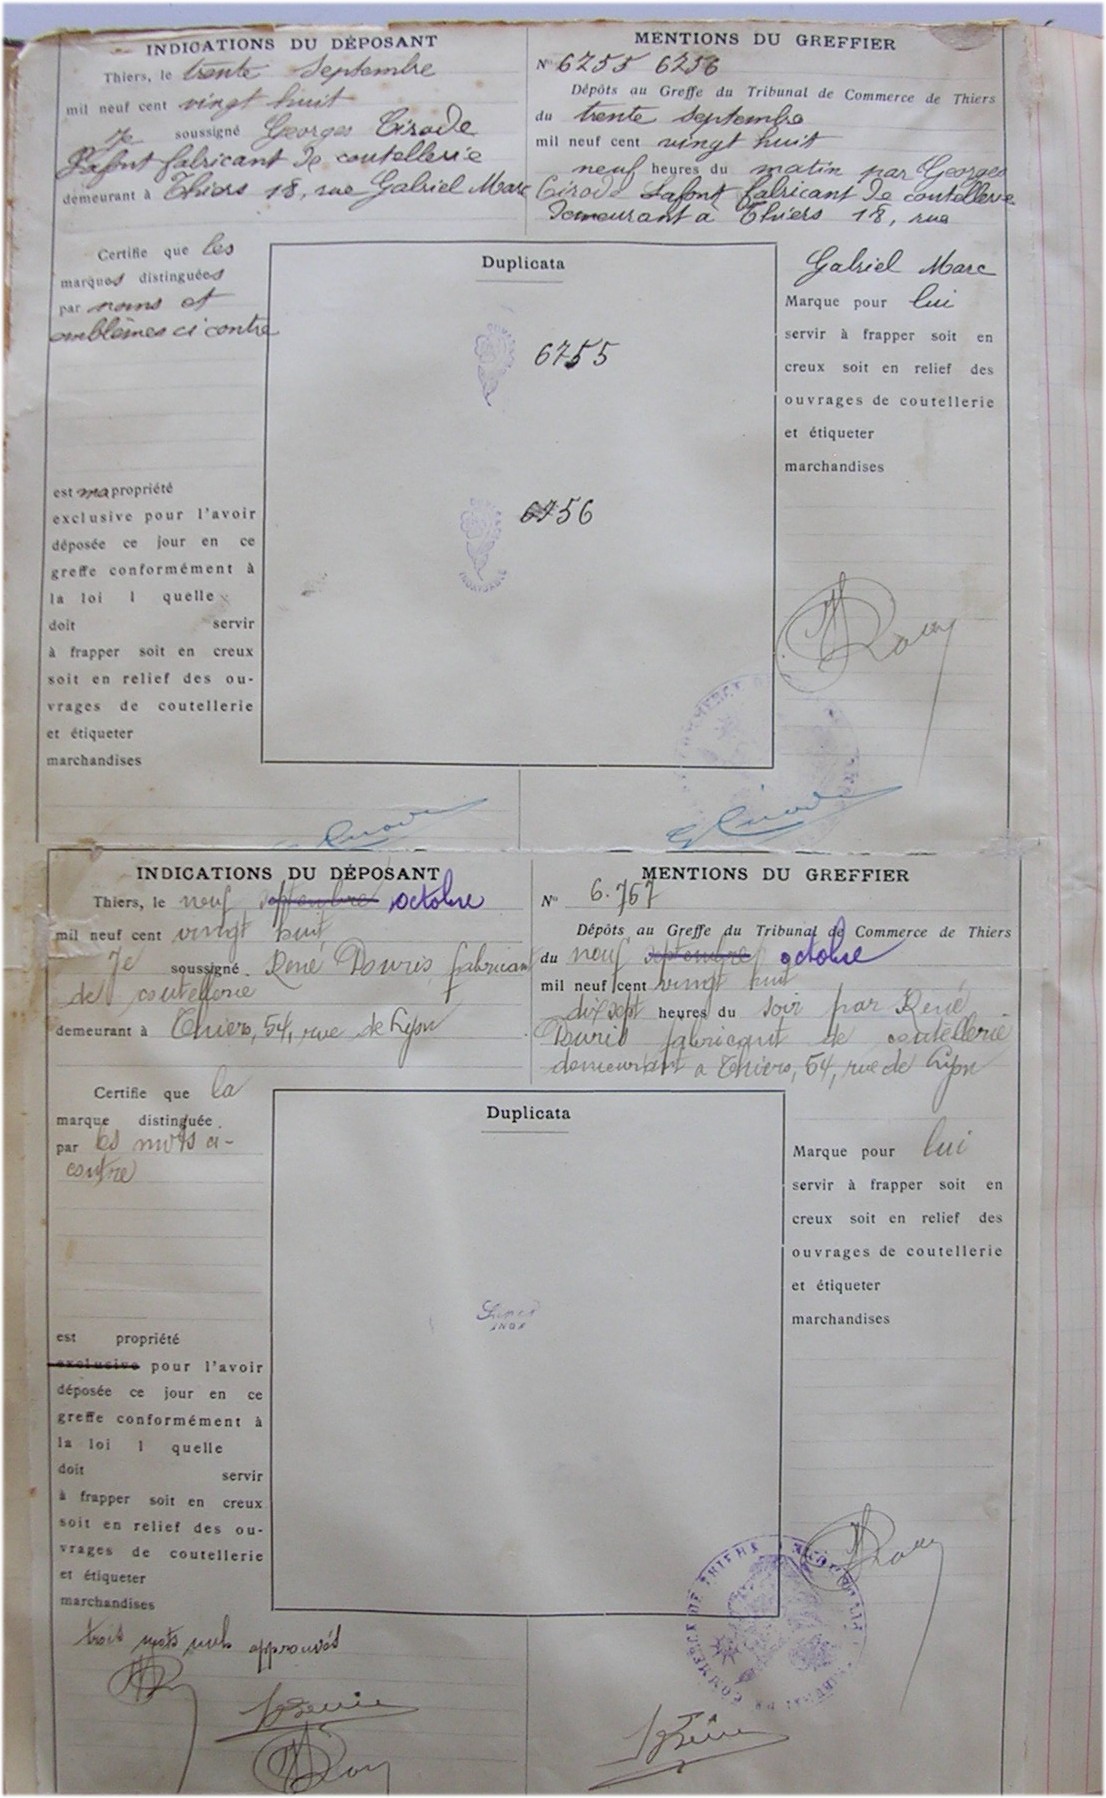 INDICATIONS DU DÉPOSANT
Thiers, le trente Septembre
mil neuf cent vingt huit
Je soussigné Georges Cirode
Lafont fabricant de coutellerie
demeurant à Thiers 18, rue Gabriel Marc
Certifie que les
marques distinguées
par noms et
emblèmes ci contre
est ma propriété
exclusive pour l'avoir
déposée ce jour en ce
greffe conformément à
la loi l quelle
doit servir
à frapper soit en creux
soit en relief des ou-
vrages de coutellerie
et étiqueter
marchandises
MENTIONS DU GREFFIER
N° 6755 6256
Dépôts au Greffe du Tribunal de Commerce de Thiers
du trente septembre
mil neuf cent vingt huit
neuf heures du matin par Georges
Cirode Lafont fabricant de coutellerie
demeurant a Thiers 18, rue
Gabriel Marc
Duplicata
6755
6756
Marque pour lui
servir à frapper soit en
creux soit en relief des
ouvrages de coutellerie
et étiqueter
marchandises
INDICATIONS DU DÉPOSANT
Thiers, le neuf septembre octobre
mil neuf cent vingt huit
Je soussigné René Douris fabricant
de coutellerie
demeurant à Thiers, 54, rue de Lyon
Certifie que la
marque distinguée
par les mots ci-
contre
est propriété
exclusive pour l'avoir
déposée ce jour en ce
greffe conformément à
la loi l quelle
doit servir
à frapper soit en creux
soit en relief des ou-
vrages de coutellerie
et étiqueter
marchandises
trois mots nuls approuvés
MENTIONS DU GREFFIER
N° 6.767
Dépôts au Greffe du Tribunal de Commerce de Thiers
du neuf septembre octobre
mil neuf cent vingt huit
dix sept heures du soir par René
Douris fabricant de coutellerie
demeurant a Thiers, 54, rue de Lyon
Duplicata
INOX
Marque pour lui
servir à frapper soit en
creux soit en relief des
ouvrages de coutellerie
et étiqueter
marchandises
COMMERCE DE THIERS